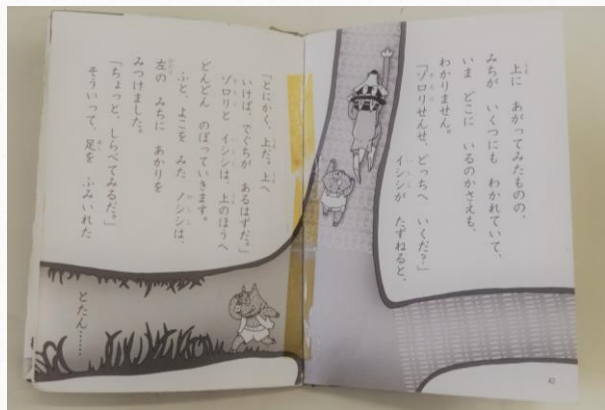 上に あがってみたものの、
みちが いくつにも わかれていて、
いま どこに いるのかさえも、
わかりません。
「ゾロリせんせ、どっちへ いくだ?」
イシシが たずねると、
42
「とにかく、上だ。上へ
いけば、でぐちが あるはずだ。」
ゾロリと イシシは、上のほうへ
どんどん のぼっていきます。
ふと、よこを みた ノシシは、
左の みちに あかりを
みつけました。
「ちょっと、しらべてみるだ。」
そういって、足を ふみいれた
とたん……